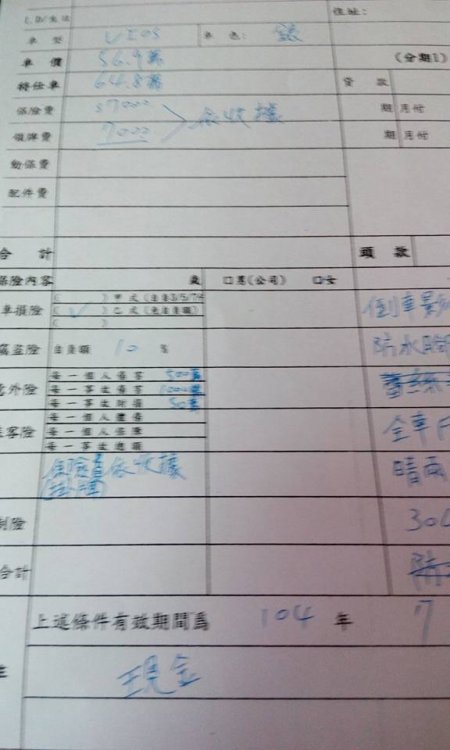 住址:
車型 VIOS 車色: 銀
車價 56.9萬 (分期1)
特仕車 64.8萬 貸款
保險費 37000 期 月付
領牌費 7000 依收據 期 月付
動保費
配件費
合計 頭款
保險內容 歲 □男(公司) □女
車損險 ( ) 甲式
( ✓ ) 乙式 倒車影
( )
竊盜險 自負額 10 % 防水
意外險 每一個人傷害 500萬
每一事故傷害 1000萬
每一事故財損 50萬
乘客險 每一個人體傷 全車
每一個人
每一事故總額
保險費依收據 晴雨
制險 304
合計
上述條件有效期間為 104 年 7
年 現金